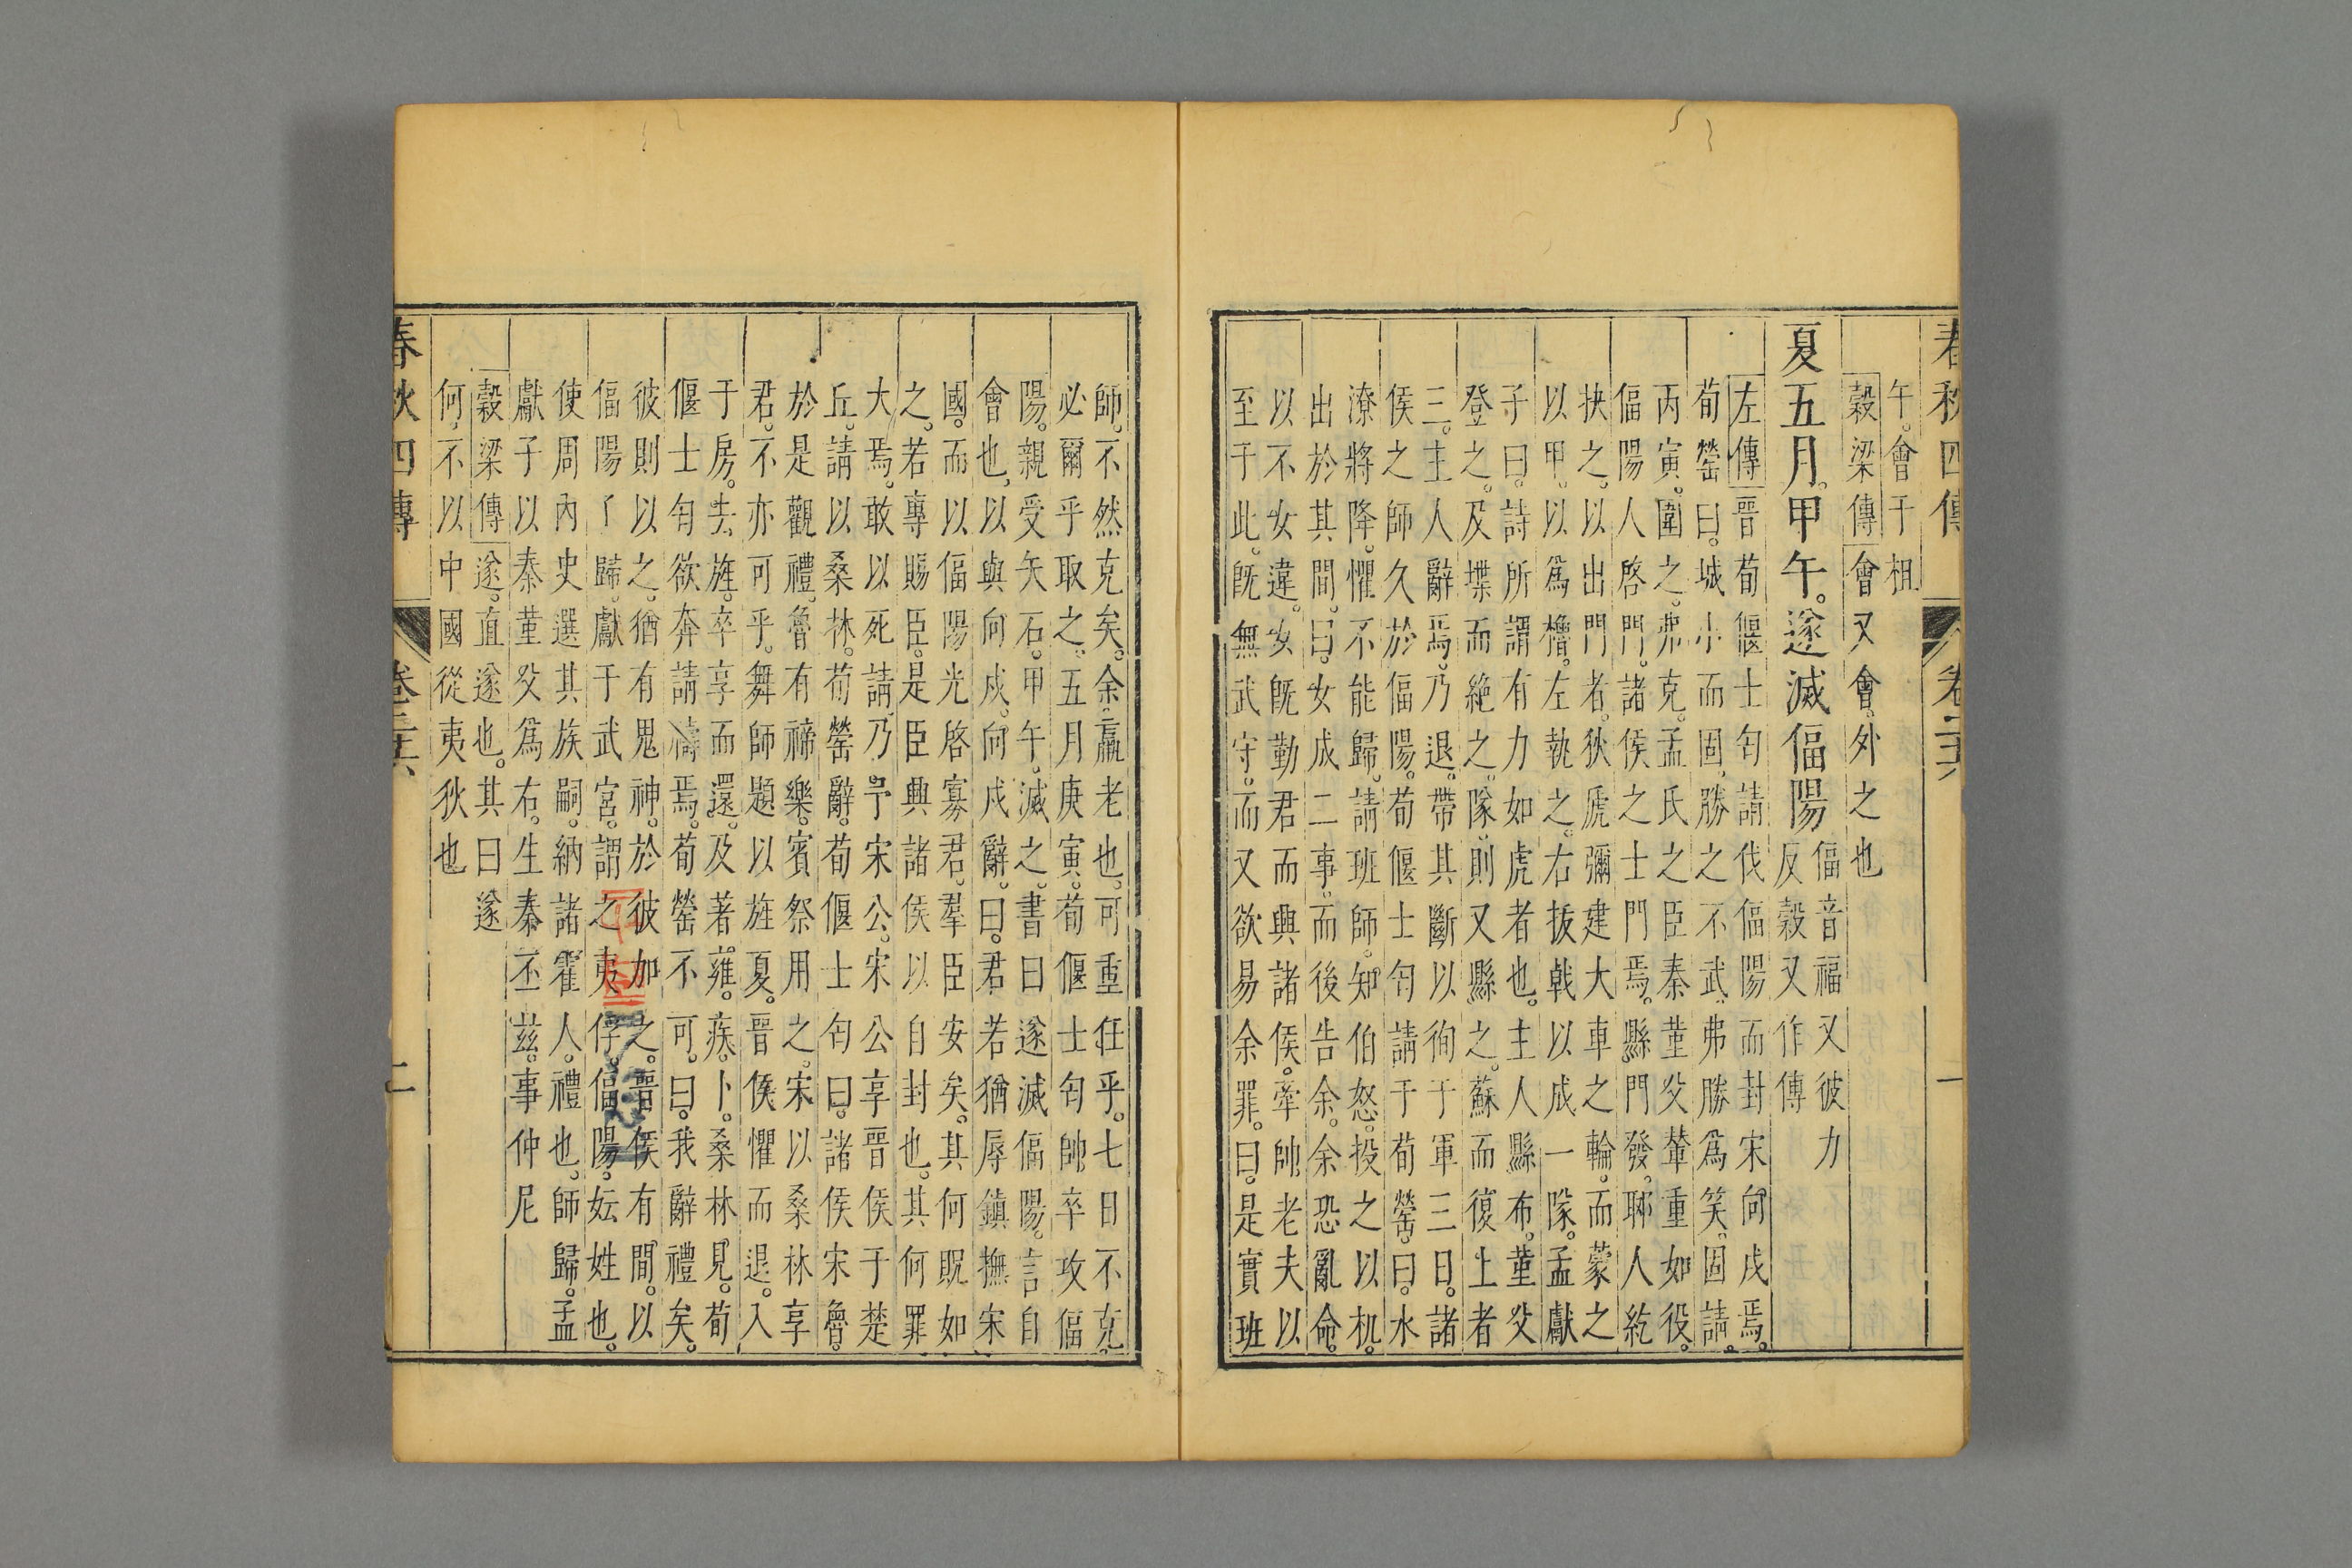 春秋四傳 卷二十六 一
午。會于柤
穀梁傳 會又會。外之也
夏五月。甲午。遂滅偪陽 偪音福又彼力
反穀又作傳
左傳 晉荀偃士匄請伐偪陽而封宋向戌焉。
荀罃曰。城小而固。勝之不武。弗勝爲笑。固請。
丙寅。圍之。弗克。孟氏之臣秦堇父輦重如役。
偪陽人啓門。諸侯之士門焉。縣門發。郰人紇
抉之。以出門者。狄虒彌建大車之輪。而蒙之
以甲。以爲櫓。左執之。右拔戟以成一隊。孟獻
子曰。詩所謂有力如虎者也。主人縣布。堇父
登之。及堞而絶之。隊。則又縣之。蘇而復上者
三。主人辭焉。乃退。帶其斷以徇于軍三日。諸
侯之師久於偪陽。荀偃士匄請于荀罃。曰。水
潦將降。懼不能歸。請班師。知伯怒。投之以机。
出於其間。曰。女成二事。而後告余。余恐亂命。
以不女違。女既勤君而興諸侯。牽帥老夫以
至于此。既無武守。而又欲易余罪。曰。是實班
師。不然克矣。余羸老也。可重任乎。七日不克。
必爾乎取之。五月庚寅。荀偃士匄帥卒攻偪
陽。親受矢石。甲午。滅之。書曰遂滅偪陽。言自
會也。以與向戌。向戌辭。曰。君若猶辱鎮撫宋
國。而以偪陽光啓寡君。羣臣安矣。其何貺如
之。若專賜臣。是臣興諸侯以自封也。其何罪
大焉。敢以死請。乃予宋公。宋公享晉侯于楚
丘。請以桑林。荀罃辭。荀偃士匄曰。諸侯宋魯。
於是觀禮。魯有禘樂。賓祭用之。宋以桑林享
君。不亦可乎。舞師題以旌夏。晉侯懼而退。入
于房。去旌。卒享而還。及著雍。疾。卜。桑林見。荀
偃士匄欲奔請禱焉。荀罃不可。曰。我辭禮矣。
彼則以之。猶有鬼神。於彼加之。晉侯有間。以
偪陽子歸。獻于武宮。謂之夷俘。偪陽。妘姓也。
使周內史選其族嗣。納諸霍人。禮也。師歸。孟
獻子以秦堇父爲右。生秦丕兹。事仲尼
穀梁傳 遂。直遂也。其曰遂
何。不以中國從夷狄也
春秋四傳 卷二十六 二